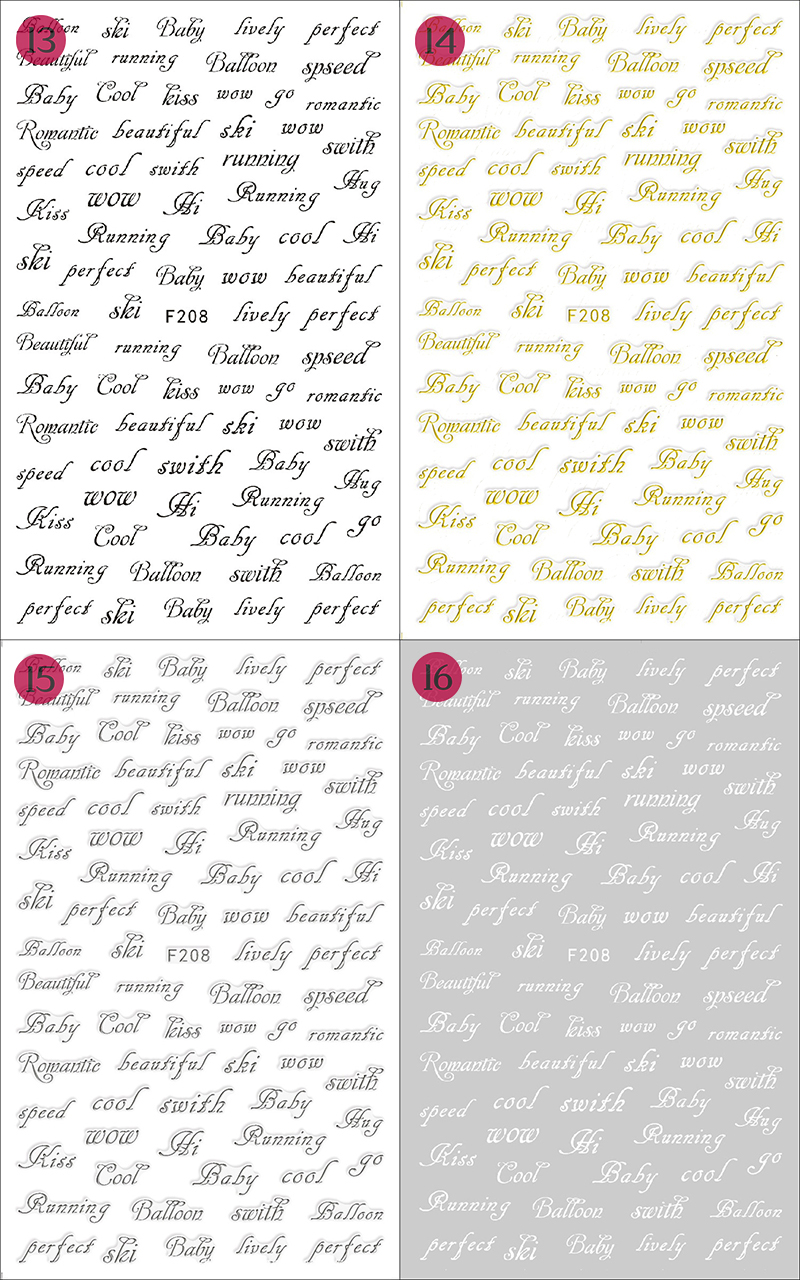 13
Balloon ski Baby lively perfect
Beautiful running Balloon spseed
Baby Cool kiss wow go romantic
Romantic beautiful ski wow
speed cool swith running swith
Kiss wow Hi Running Hug
Running Baby cool Hi
ski perfect Baby wow beautiful
Balloon ski F208 lively perfect
Beautiful running Balloon spseed
Baby Cool kiss wow go romantic
Romantic beautiful ski wow swith
speed cool swith Baby Hug
Kiss wow Hi Running go
Cool Baby cool
Running Balloon swith Balloon
perfect ski Baby lively perfect
14
Balloon ski Baby lively perfect
Beautiful running Balloon spseed
Baby Cool kiss wow go romantic
Romantic beautiful ski wow
speed cool swith running swith
Kiss wow Hi Running Hug
Running Baby cool Hi
ski perfect Baby wow beautiful
Balloon ski F208 lively perfect
Beautiful running Balloon spseed
Baby Cool kiss wow go romantic
Romantic beautiful ski wow swith
speed cool swith Baby Hug
Kiss wow Hi Running go
Cool Baby cool
Running Balloon swith Balloon
perfect ski Baby lively perfect
15
Balloon ski Baby lively perfect
Beautiful running Balloon spseed
Baby Cool kiss wow go romantic
Romantic beautiful ski wow
speed cool swith running swith
Kiss wow Hi Running Hug
Running Baby cool Hi
ski perfect Baby wow beautiful
Balloon ski F208 lively perfect
Beautiful running Balloon spseed
Baby Cool kiss wow go romantic
Romantic beautiful ski wow swith
speed cool swith Baby Hug
Kiss wow Hi Running go
Cool Baby cool
Running Balloon swith Balloon
perfect ski Baby lively perfect
16
Balloon ski Baby lively perfect
Beautiful running Balloon spseed
Baby Cool kiss wow go romantic
Romantic beautiful ski wow
speed cool swith running swith
Kiss wow Hi Running Hug
Running Baby cool Hi
ski perfect Baby wow beautiful
Balloon ski F208 lively perfect
Beautiful running Balloon spseed
Baby Cool kiss wow go romantic
Romantic beautiful ski wow swith
speed cool swith Baby Hug
Kiss wow Hi Running go
Cool Baby cool
Running Balloon swith Balloon
perfect ski Baby lively perfect